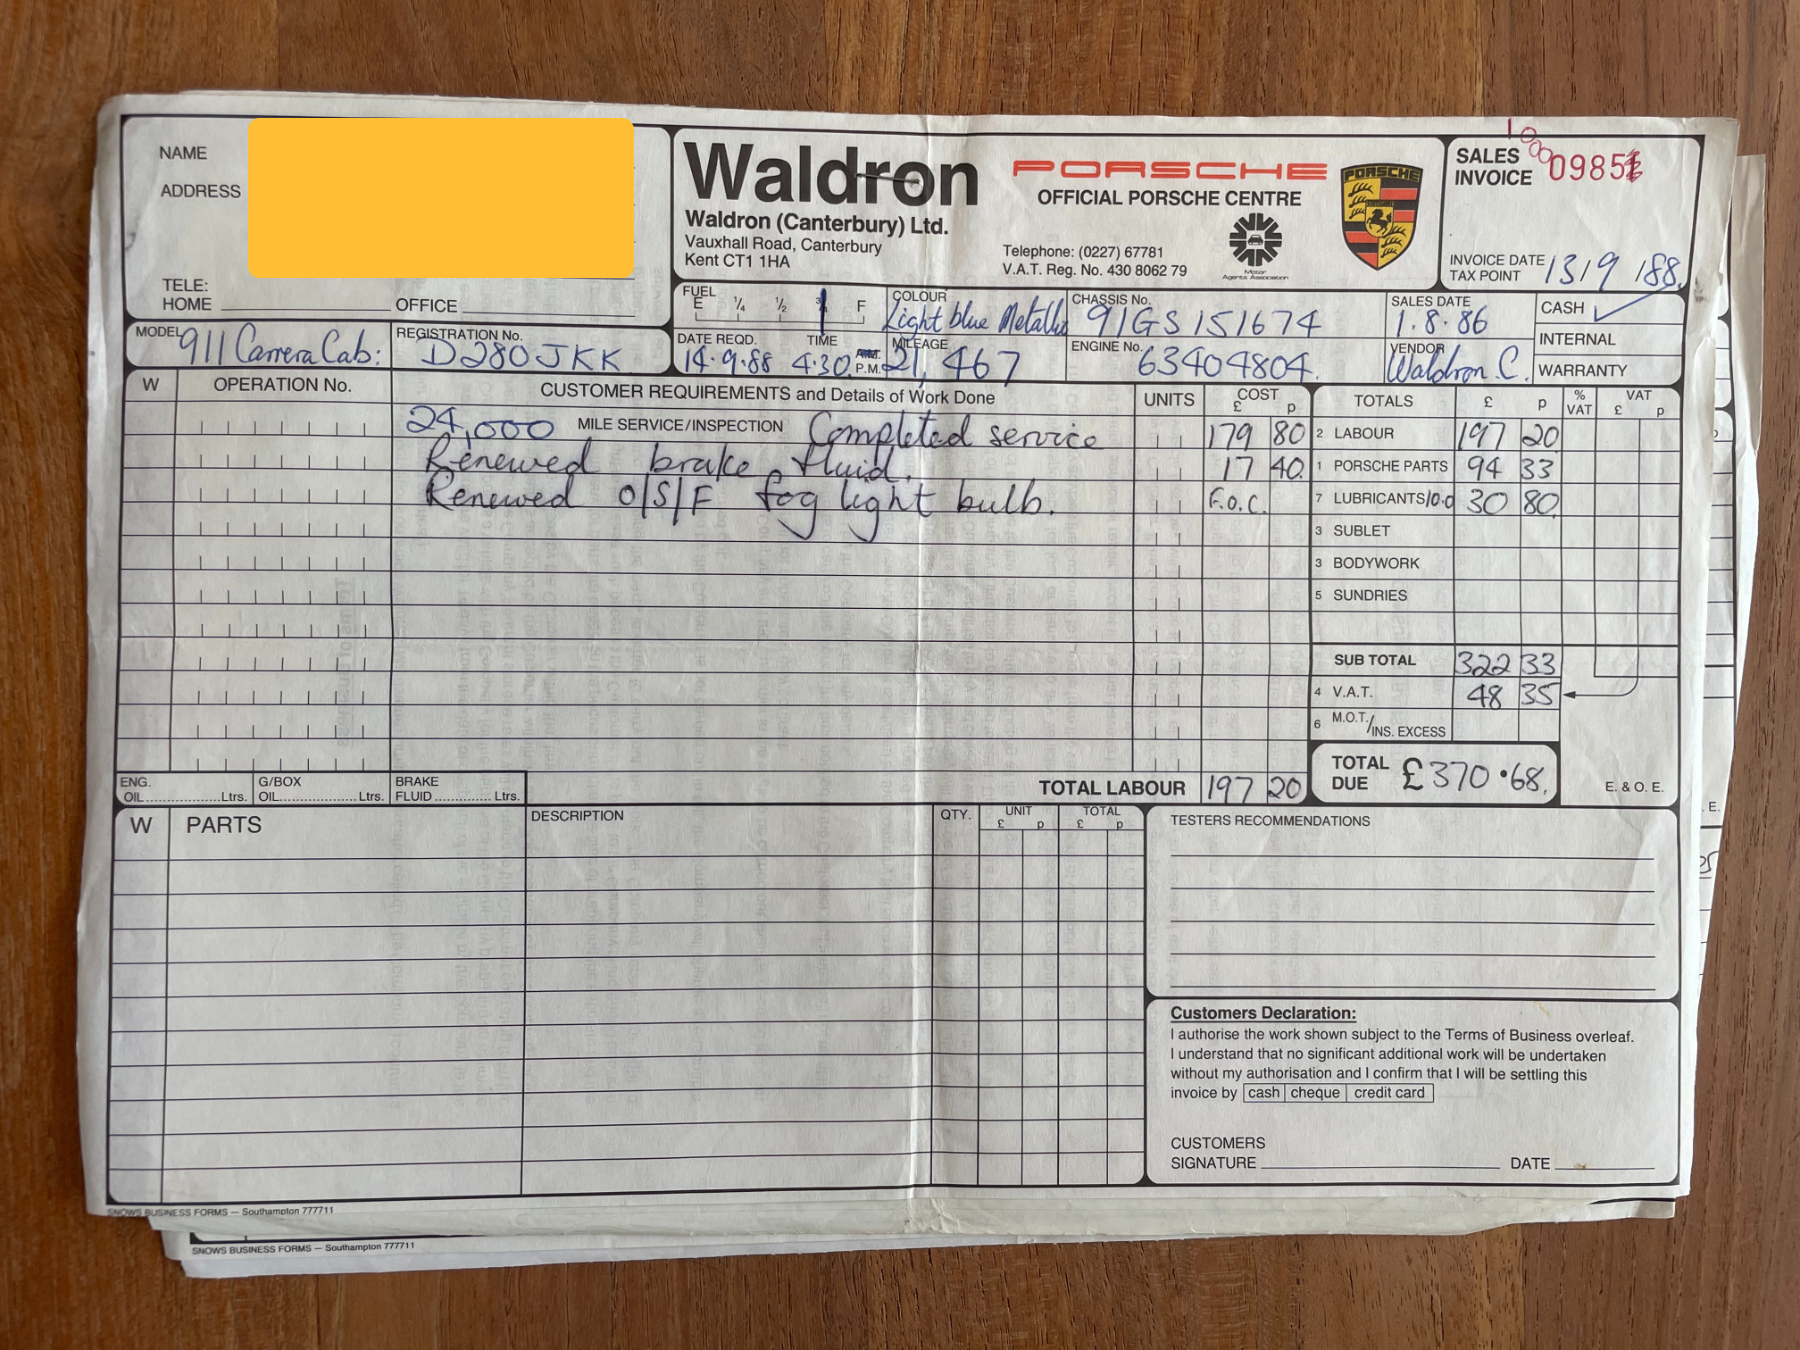 NAME
ADDRESS
TELE:
HOME
OFFICE
Waldron
Waldron (Canterbury) Ltd.
Vauxhall Road, Canterbury
Kent CT1 1HA
PORSCHE
OFFICIAL PORSCHE CENTRE
Telephone: (0227) 67781
V.A.T. Reg. No. 430 8062 79
Motor
Agents Association
PORSCHE
SALES
INVOICE
INVOICE DATE
TAX POINT 13/9/88.
MODEL 911 Carrera Cab:
REGISTRATION No. D280JKK
FUEL E ¼ ½ F
COLOUR Light blue Metallic
CHASSIS No. 91GS151674
SALES DATE 1.8.86
CASH ✓
INTERNAL
WARRANTY
DATE REQD. 14.9.88
TIME 4:30 P.M.
MILEAGE 21,467
ENGINE No. 63404804.
VENDOR Waldron C.
W OPERATION No. CUSTOMER REQUIREMENTS and Details of Work Done UNITS COST £ p
24,000 MILE SERVICE/INSPECTION Completed service 179 80
Renewed brake fluid. 17 40
Renewed O/S/F fog light bulb. F.O.C.
TOTALS £ p % VAT VAT £ p
2 LABOUR 197 20
1 PORSCHE PARTS 94 33
7 LUBRICANTS 10.0 30 80
3 SUBLET
3 BODYWORK
5 SUNDRIES
SUB TOTAL 322 33
4 V.A.T. 48 35
6 M.O.T./INS. EXCESS
TOTAL DUE £370.68.
E. & O. E.
ENG. OIL Ltrs.
G/BOX OIL Ltrs.
BRAKE FLUID Ltrs.
TOTAL LABOUR 197 20
W PARTS DESCRIPTION QTY. UNIT £ p TOTAL £ p
TESTERS RECOMMENDATIONS
Customers Declaration:
I authorise the work shown subject to the Terms of Business overleaf.
I understand that no significant additional work will be undertaken
without my authorisation and I confirm that I will be settling this
invoice by cash cheque credit card
CUSTOMERS
SIGNATURE DATE
SNOWS BUSINESS FORMS — Southampton 777711
SNOWS BUSINESS FORMS — Southampton 777711